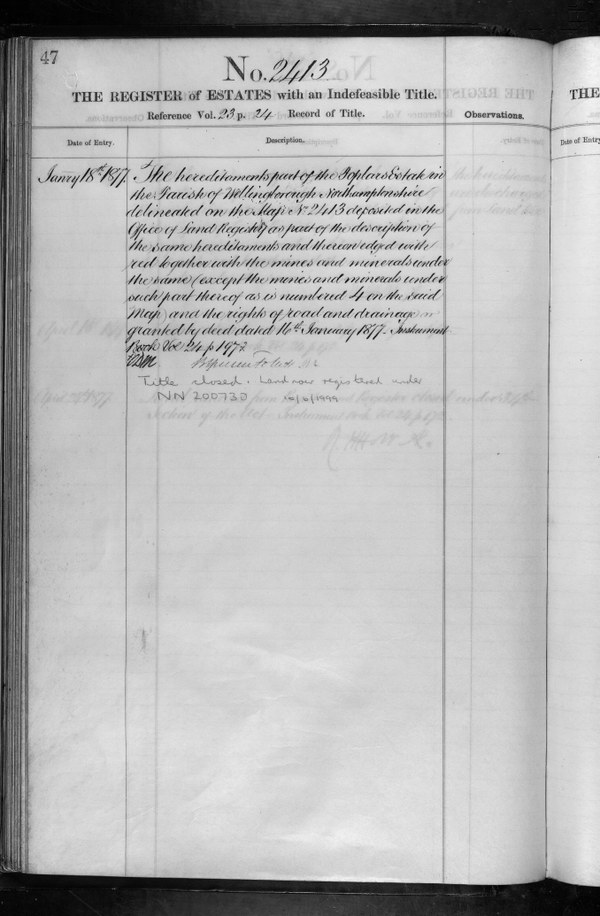 47
No. 2413
THE REGISTER of ESTATES with an Indefeasible Title.
Reference Vol. 23 p. 24 Record of Title.
Observations.
Date of Entry.
Description.
Janry 18th 1877.
The hereditaments part of the Poplars Estate in
the Parish of Wellingborough Northamptonshire
delineated on the Map No 2413 deposited in the
Office of Land Registry as part of the description of
the same hereditaments and thereon edged with
red together with the mines and minerals under
the same (except the mines and minerals under
such part thereof as is numbered 4 on the said
Map) and the rights of road and drainage
granted by deed dated 16th January 1877. Instrument
Book Vol 24 p 1972
Title closed. Land now registered under
NN 200730
THE
Date of Entry